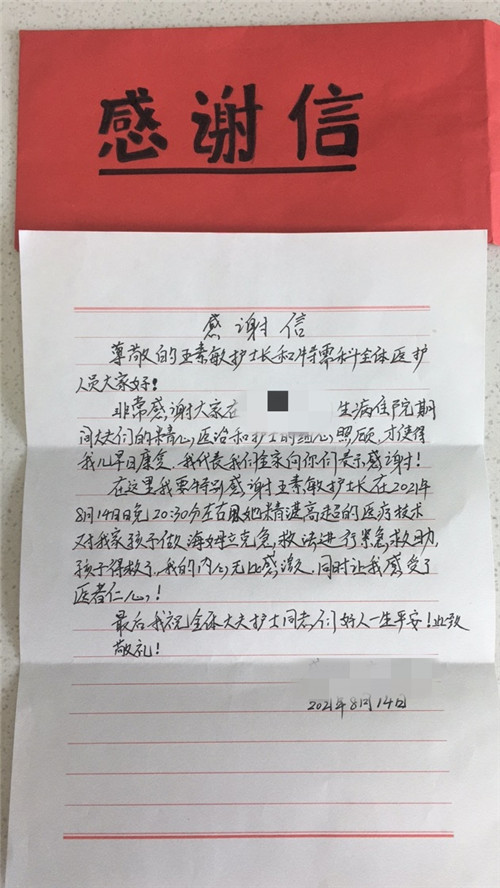 感谢信
感谢信
尊敬的王素敏护士长和特需科全体医护
人员大家好!
非常感谢大家在 生病住院期
间大夫们的精心医治和护士的细心照顾,才使得
我儿早日康复,我代表我们全家向你们表示感谢!
在这里我要特别感谢王素敏护士长在2021年
8月14日晚20:30分左右用她精湛高超的医疗技术
对我家孩子做海姆立克急救法进行紧急救助,
孩子得救了,我的内心无比感激,同时让我感受了
医者仁心!
最后我祝全体大夫护士同志们好人一生平安!此致
敬礼!
2021年8月14日